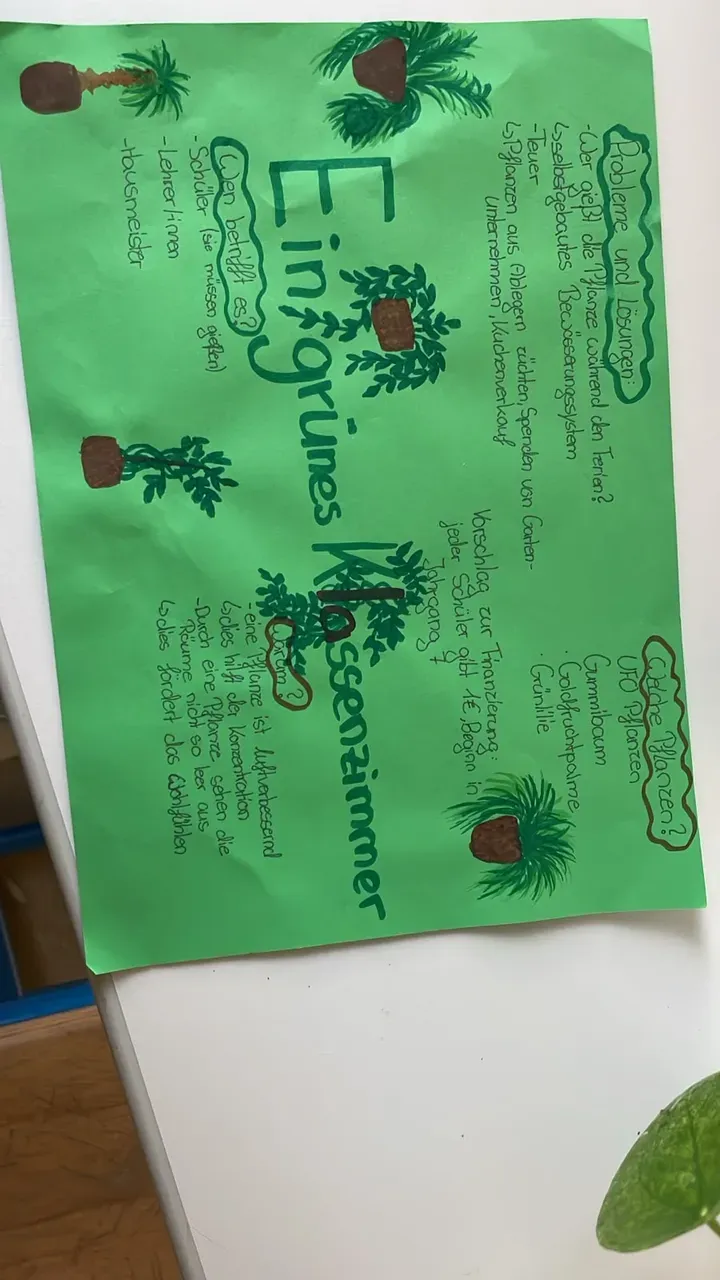 Probleme und Lösungen:
-Wer gießt die Pflanze während den Ferien?
↳selbstgebautes Bewässerungssystem
-Teuer
↳Pflanzen aus Ablegern züchten, Spenden von Garten-
unternehmen, Kuchenverkauf
Welche Pflanzen?
UFO Pflanzen
Gummibaum
· Goldfruchtpalme
· Grünlilie
Vorschlag zur Finanzierung:
jeder Schüler gibt 1€, Beginn in
Jahrgang 7
Ein grünes Klassenzimmer
Wen betrifft es?
-Schüler (sie müssen gießen)
-Lehrer/innen
-Hausmeister
Warum?
-eine Pflanze ist luftverbessernd
↳dies hilft der Konzentration
-Durch eine Pflanze sehen die
Räume nicht so leer aus
↳dies fördert das Wohlfühlen